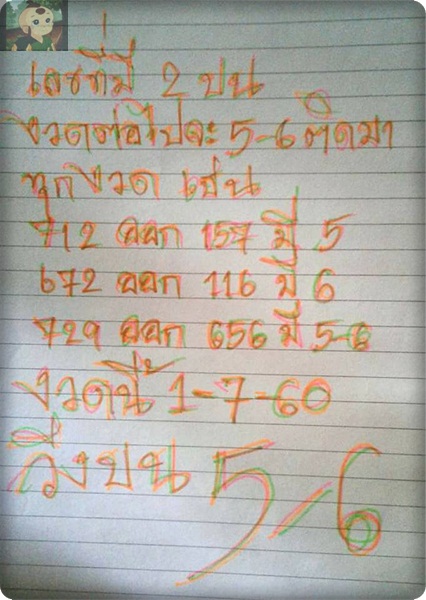 เลขที่มี 2 บน
งวดต่อไปจะ 5-6 ติดมา
ทุกงวด เช่น
712 ออก 157 มี 5
672 ออก 116 มี 6
729 ออก 656 มี 5-6
งวดนี้ 1-7-60
วิ่งบน 5/6